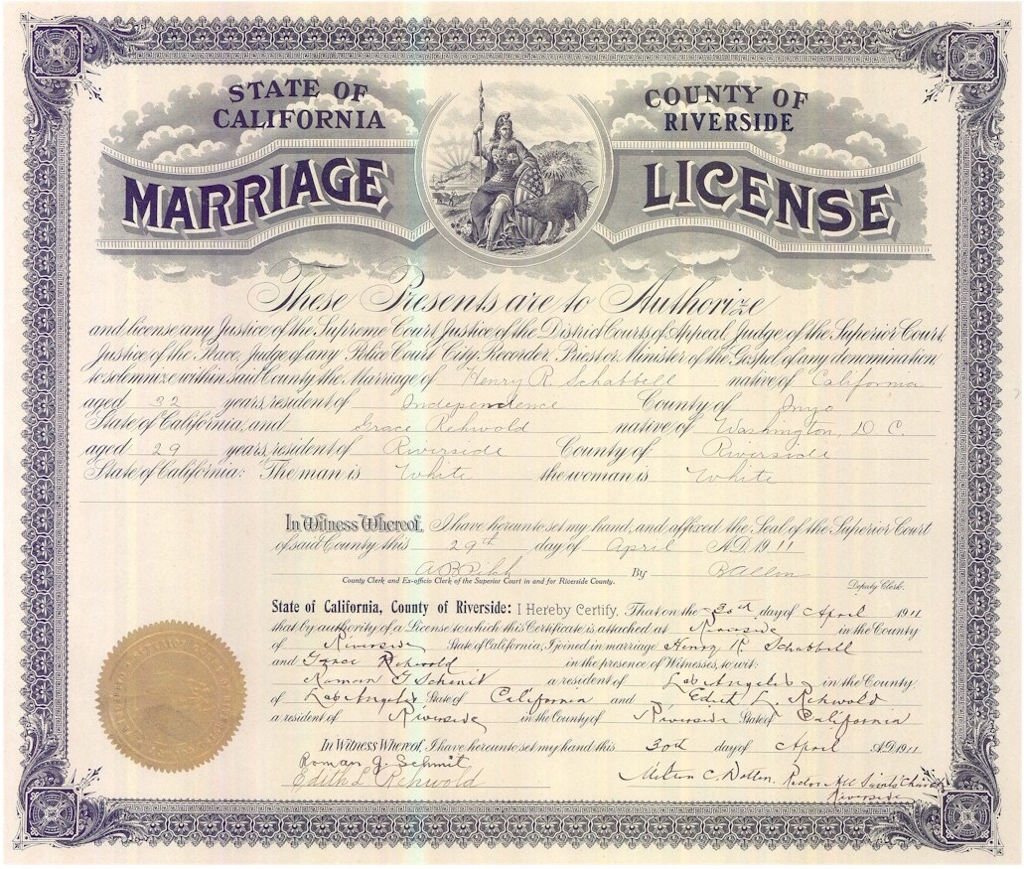 STATE OF CALIFORNIA
COUNTY OF RIVERSIDE
MARRIAGE LICENSE
These Presents are to Authorize
and license any Justice of the Supreme Court, Justice of the District Courts of Appeal, Judge of the Superior Court,
Justice of the Peace, Judge of any Police Court, City Recorder, Priest or Minister of the Gospel of any denomination,
to solemnize within said County the Marriage of Henry R. Schabbell native of California
aged 32 years, resident of Independence County of Inyo
State of California, and Grace Rehwold native of Washington, D.C.
aged 29 years, resident of Riverside County of Riverside
State of California: The man is White the woman is White
In Witness Whereof, I have hereunto set my hand, and affixed the Seal of the Superior Court
of said County this 29th day of April A.D. 1911
By
County Clerk and Ex-officio Clerk of the Superior Court in and for Riverside County.
Deputy Clerk.
State of California, County of Riverside: I Hereby Certify, That on the 30th day of April 1911
that by authority of a License to which this Certificate is attached at Riverside in the County
of Riverside State of California, I joined in marriage Henry R. Schabbell
and Grace Rehwold in the presence of Witnesses, to wit:
Roman G Schmit a resident of Los Angeles in the County
of Los Angeles State of California and Edith L. Rehwold
a resident of Riverside in the County of Riverside State of California
In Witness Whereof, I have hereunto set my hand this 30th day of April A.D. 1911
Roman G. Schmit
Edith L Rehwold
C. Rector All Saints Church
Riverside